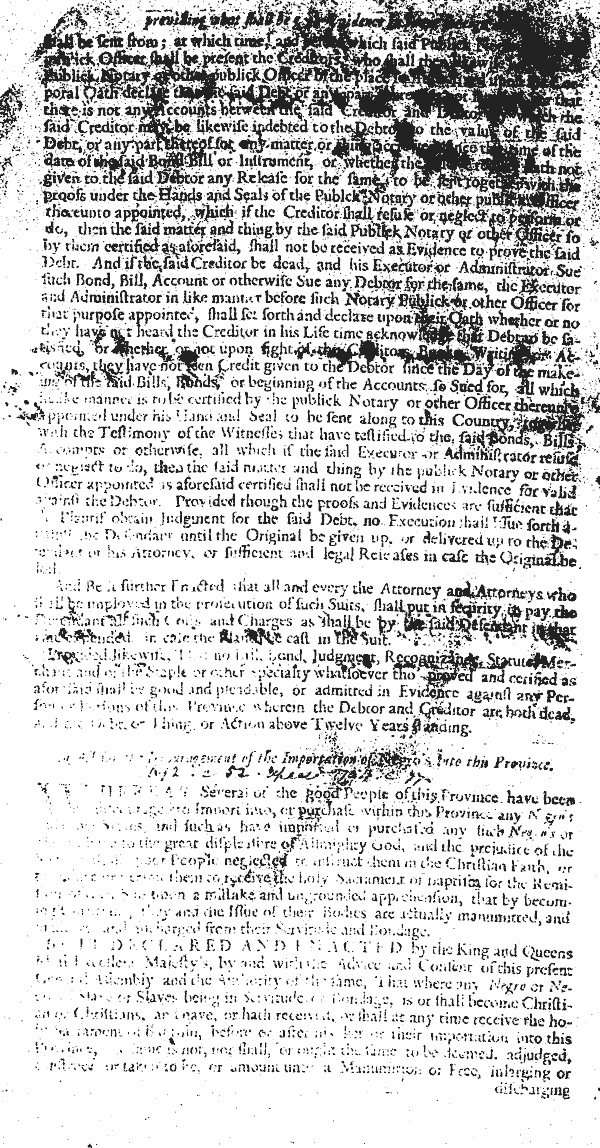 providing what shall be good Evidence
shall be sent from; at which time, and before which said Publick
publick Officer shall be present the Creditors, who shall
Publick Notary or other publick Officer of the place
poral Oath declare that the said Debt or any part that
there is not any Accounts between the said Creditor and Debtor which the
said Creditor may be likewise indebted to the Debtor to the value of the said
Debt, or any part thereof for any matter or thing since the time of the
date of the said Bond Bill or Instrument, or whether he hath not
given to the said Debtor any Release for the same, to be sent together with the
proofs under the Hands and Seals of the Publick Notary or other publick Officer
thereunto appointed, which if the Creditor shall refuse or neglect to perform or
do, then the said matter and thing by the said Publick Notary or other Officer so
by them certified as aforesaid, shall not be received as Evidence to prove the said
Debt. And if the said Creditor be dead, and his Executor or Administrator Sue
such Bond, Bill, Account or otherwise Sue any Debtor for the same, the Executor
and Administrator in like manner before such Notary Publick or other Officer for
that purpose appointed, shall set forth and declare upon their Oath whether or no
they have not heard the Creditor in his Life time acknowledge that Debt to be sa-
tisfied, or whether or not upon sight of the Creditors Books, Writings or Ac-
counts, they have not seen Credit given to the Debtor since the Day of the make-
ing of the said Bills, Bonds, or beginning of the Accounts so Sued for, all which
in like manner is to be certified by the publick Notary or other Officer thereunto
appointed under his Hand and Seal to be sent along to this Country, together
with the Testimony of the Witnesses that have testified to the said Bonds, Bills
Accompts or otherwise, all which if the said Executor or Administrator refuse
or neglect to do, then the said matter and thing by the publick Notary or other
Officer appointed as aforesaid certified shall not be received in Evidence for valid
against the Debtor. Provided though the proofs and Evidences are sufficient that
Plantif obtain Judgment for the said Debt, no Execution shall Issue forth a-
gainst the Defendant until the Original be given up, or delivered up to the De-
fendant or his Attorney, or sufficient and legal Releases in case the Original be
lost.
And Be it further Enacted that all and every the Attorney and Attorneys who
shall be imployed in the prosecution of such Suits, shall put in security to pay the
Defendant all such Costs and Charges as shall be by the said Defendant in that
expended, in case the Plantif be cast in the Suit.
Provided likewise, That no bill, bond, Judgment, Recognizance, Statute Mer-
chant and of the Staple or other specialty whatsoever tho' proved and certified as
aforesaid shall be good and pleadable, or admitted in Evidence against any Per-
son or Persons of this Province wherein the Debtor and Creditor are both dead,
and the Debt, or Thing, or Action above Twelve Years standing.
An Act for the Incouragement of the Importation of Negro's into this Province.
WHEREAS Several of the good People of this Province have been
discouraged to Import into, or purchase within this Province any Negro's
or other Slaves, and such as have imported or purchased any such Negro's or
to the great displeasure of Almighty God, and the prejudice of the
poor People neglected to instruct them in the Christian Faith, or
them to receive the holy Sacrament of Baptism for the Remi-
upon a mistake and ungrounded apprehension, that by becom-
they and the Issue of their Bodies are actually manumitted, and
discharged from their Servitude and Bondage.
BE IT DECLARED AND ENACTED by the King and Queens
Most Excellent Majesty's, by and with the Advice and Consent of this present
General Assembly and the Authority of the same, That where any Negro or Ne-
groes Slave or Slaves being in Servitude or Bondage, is or shall become Christi-
an or Christians, and have, or hath received, or shall at any time receive the ho-
ly Sacrament of Baptism, before or after his her or their importation into this
Province, the same is not, nor shall, or ought the same to be deemed, adjudged,
construed or taken to be, or amount unto a Manumition or Free, inlarging or
discharging